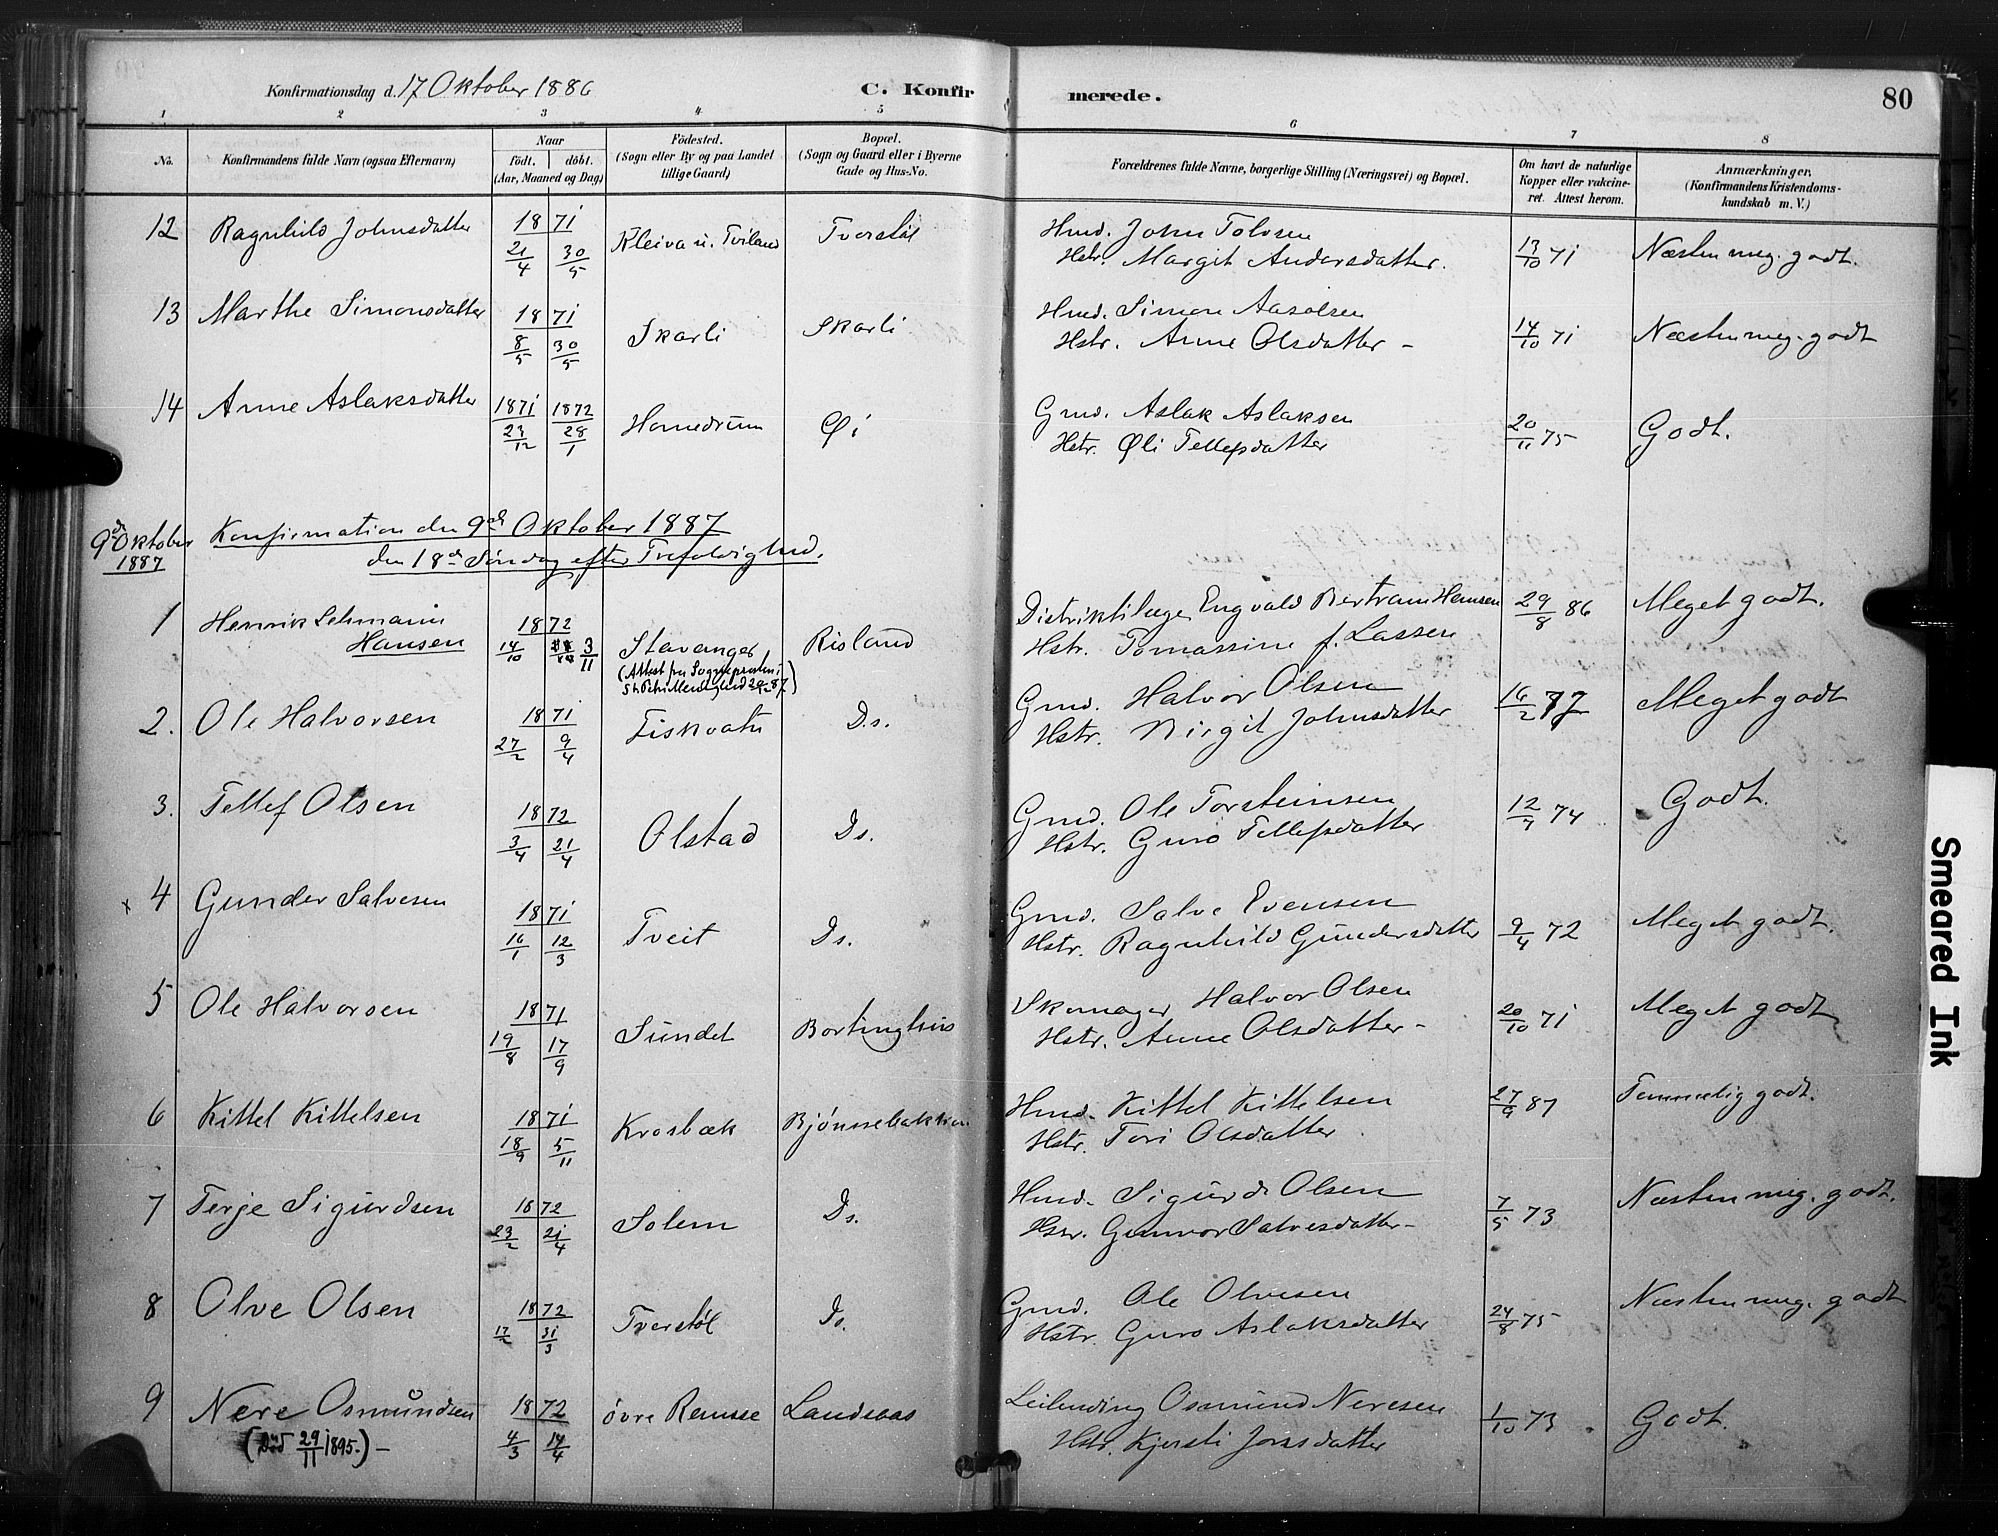 Konfirmationsdag d. 17 Oktober 1886 C. Konfirmerede. 80
1 2 3 4 5 6 7 8
No. Konfirmandens fulde Navn (ogsaa Efternavn) Naar født. døbt. (Aar, Maaned og Dag) Fødested. (Sogn eller By og paa Landet tillige Gaard) Bopæl. (Sogn og Gaard eller i Byerne Gade og Hus-No. Forældrenes fulde Navne, borgerlige Stilling (Næringsvei) og Bopæl. Om havt de naturlige Kopper eller vakcineret. Attest herom. Anmærkninger. (Konfirmandens Kristendomskundskab m. V.)
12 Ragnhild Johnsdatter 1871 21/4 30/5 Kleiva u. Tviland Tverstøl Hmd. John Tolvsen
Hstr. Margit Andersdatter. 13/10 71 Næsten meg. godt.
13 Marthe Simonsdatter 1871 8/5 30/5 Skarli Skarli Hmd. Simon Aasolsen
Hstr. Anne Olsdatter - 14/10 71 Næsten meg. godt
14 Anne Aslaksdatter 1871 23/12 1872 28/1 Homedrum Øi Gmd. Aslak Aslaksen
Hstr. Øli Tellefsdatter 20/11 75 Godt.
9d Oktober 1887 Konfirmation den 9de Oktober 1887
den 18de Søndag efter Trefoldighed.
1 Henrik Lehmann Hansen 1872 14/10 3/11 Stavanger Risland Distriktslæge Engvald Bertram Hansen
(Attest fra Sognepresten i
Hstr. Tomassine f. Lassen 29/8 86 Meget godt.
2. Ole Halvorsen 1871 27/2 9/4 Fiskvatn Ds. Gmd. Halvor Olsen
Hstr. Birgit Johnsdatter 16/2 77 Meget godt
3. Tellef Olsen 1872 3/4 21/4 Olstad Ds. Gmd. Ole Torsteinsen
Hstr. Guro Tellefsdatter 12/7 74 Godt.
x 4 Gunder Salvesen 1871 16/1 12/3 Tveit Ds. Gmd. Salve Evensen
Hstr. Ragnhild Gundersdatter 9/4 72 Meget godt.
5 Ole Halvorsen 1871 19/8 17/9 Sundet Bortinghus Skomager Halvor Olsen
Hstr. Anne Olsdatter - 20/10 71 Meget godt
6 Kittel Kittelsen 1871 18/9 5/11 Krosbæk Bjønnebakken Hmd. Kittel Kittelsen
Hstr. Tori Olsdatter 27/9 87 Temmelig godt.
7 Terje Sigurdsen 1872 23/2 21/4 Solem Ds. Hmd. Sigurd Olsen
Hstr. Gunvor Salvesdatter - 7/5 73 Næsten meg. godt.
8 Olve Olsen 1872 17/2 31/3 Tverstøl Ds. Gmd. Ole Olvesen
Hstr. Guro Aslaksdatter 24/8 75 Næsten meg. godt
9 Nere Osmundsen 1872 4/3 14/4 øvre Ramse Landsaas Leilending Osmund Neresen
(Død 29/11 1895.) - Hstr. Kjersti Jonsdatter 1/10 73 Godt.
Smeared Ink